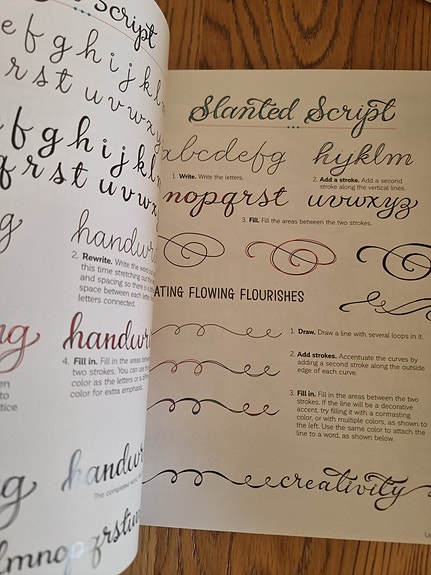 Script
e f g h i j k l
r s t u v w x y
f g h i j k l
q r s t u v w x
handwr
2. Rewrite. Write the word
this time stretching out
and spacing so there is
space between each
letters connected.
handwr
4. Fill in. Fill in the areas between
two strokes. You can use
color as the letters or a
color for extra emphasis.
handwr
The completed word.
lmnopqrstuv
Slanted Script
abcdefg hijklm
1. Write. Write the letters.
2. Add a stroke. Add a second
stroke along the vertical lines.
nopqrst uvwxyz
3. Fill. Fill the areas between the two strokes.
ATING FLOWING FLOURISHES
1. Draw. Draw a line with several loops in it.
2. Add strokes. Accentuate the curves by
adding a second stroke along the outside
edge of each curve.
3. Fill in. Fill in the areas between the two
strokes. If the line will be a decorative
accent, try filling it with a contrasting
color, or with multiple colors, as shown to
the left. Use the same color to attach the
line to a word, as shown below.
creativity